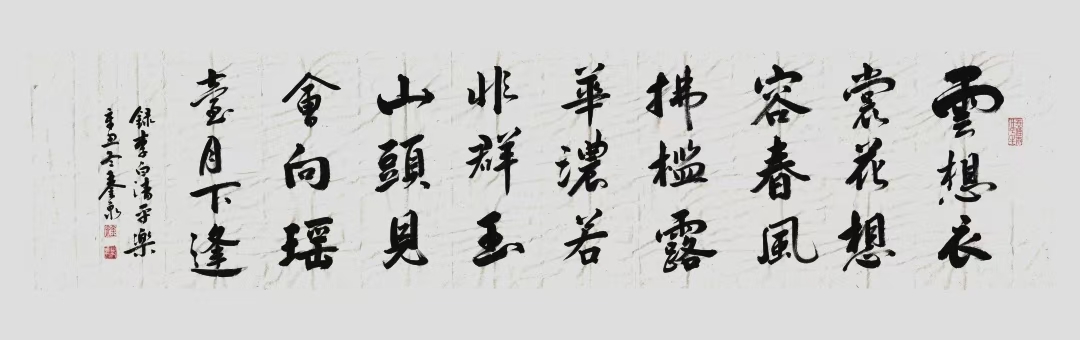 雲想衣
裳花想
容春風
拂檻露
華濃若
非群玉
山頭見
會向瑶
臺月下逢
録李白清平樂
辛丑冬奉泉